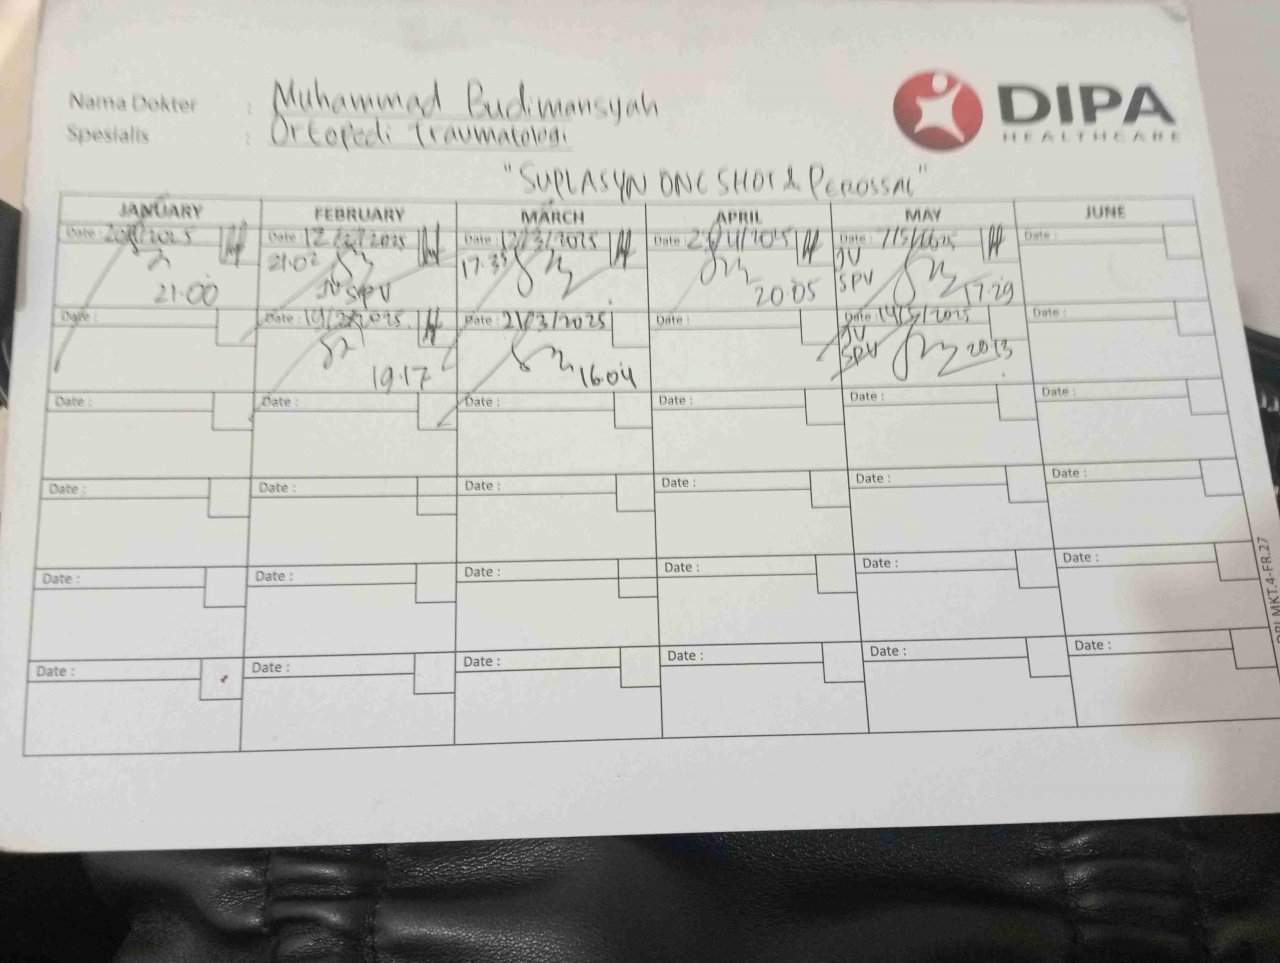 Nama Dokter : Muhammad Budimansyah
Spesialis : Ortopedi Traumatologi
DIPA
HEALTHCARE
"SUPLASYN ONE SHOT &
JANUARY FEBRUARY MARCH APRIL MAY JUNE
Date : Date : 12/2/2025 Date : 12/3/2025 Date : Date : 7/5/2025 Date :
21.02 17.33 JV
SPV
21.00 JV SPV 20.05 17.29
Date : Date : 19/2/2025 Date : 21/3/2025 Date : Date : 14/5/2025 Date :
JV
19.17 16.04 SPV 20.13
Date : Date : Date : Date : Date : Date :
Date : Date : Date : Date : Date : Date :
Date : Date : Date : Date : Date : Date :
Date : Date : Date : Date : Date : Date :
MKT.4-FR.27